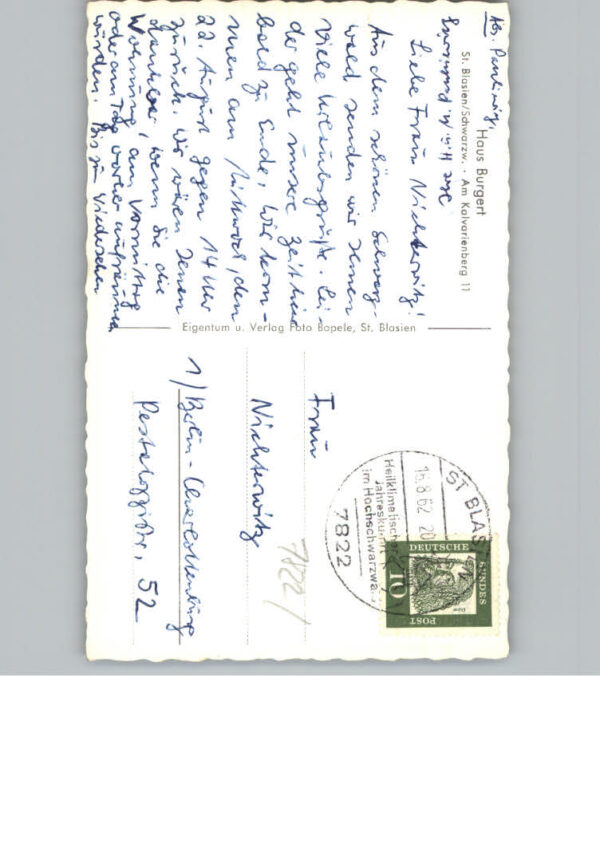 Abs. Pauliwig,
Haus Burgert
St. Blasien/Schwarzw. · Am Kalvarienberg 11
Liebe Frau Nichterwitz!
Aus dem schönen Schwarz-
wald senden wir Ihnen
viele Urlaubsgrüße. Lei-
der geht unsere Zeit hier
bald zu Ende, wir kom-
men am Mittwoch, den
22. August gegen 14 Uhr
zurück. Wir wären Ihnen
dankbar, wenn Sie die
Wohnung am Vormittag
oder am Tag vorher aufräumen
würden. Bis zum Wiedersehen
Eigentum u. Verlag Foto Bopele, St. Blasien
Frau
Nichterwitz
1) Berlin-Charlottenburg
Pestalozzistr. 52
7822/
ST BLAS
16.8.62 20
Heilklimatischer
Jahreskurort
im Hochschwarzwa
7822
DEUTSCHE
BUNDES
POST
10